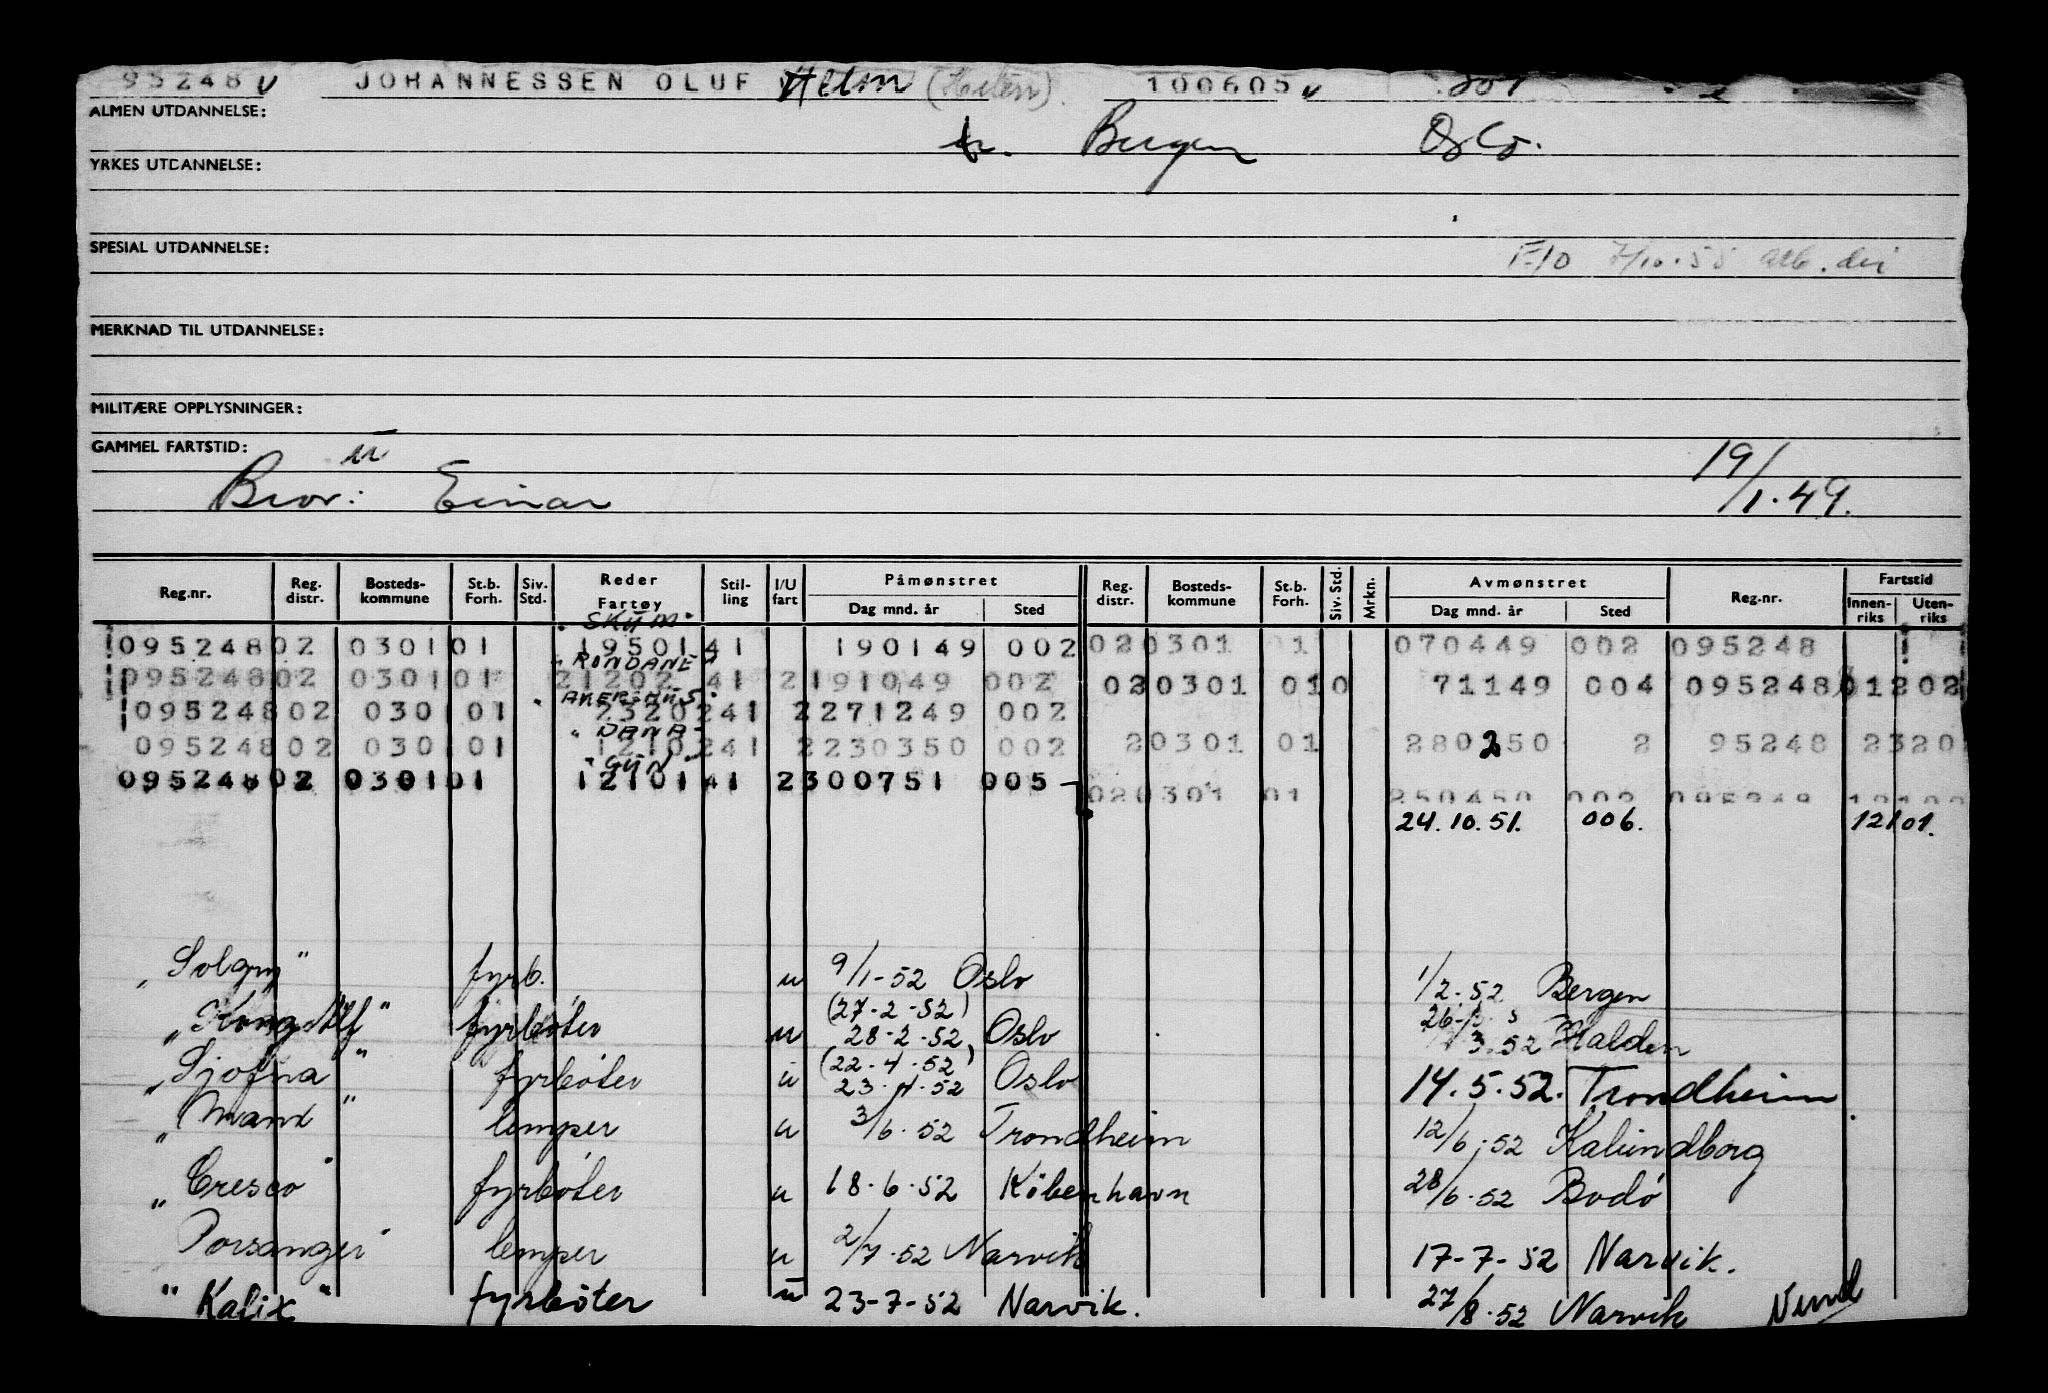 95248 v JOHANNESSEN OLUF Helm (Helén). 100605 v
ALMEN UTDANNELSE:
Bergen Oslo.
YRKES UTDANNELSE:
SPESIAL UTDANNELSE:
F/O 7/10-55 arb. dir
MERKNAD TIL UTDANNELSE:
MILITÆRE OPPLYSNINGER:
GAMMEL FARTSTID:
u
Bror: Einar 19/1.49.
Reg.nr. Reg. distr. Bosteds-kommune St.b. Forh. Siv. Std. Reder Fartøy Stil-ling I/U fart Påmønstret Dag mnd. år Sted Reg. distr. Bosteds-kommune St.b. Forh. Siv. Std. Mrkn. Avmønstret Dag mnd. år Sted Reg.nr. Fartstid Innen-riks Uten-riks
"SKUM"
095248 02 0301 01 19501 41 190149 002 02 0301 01 070449 002 095248
"RONDANE"
095248 02 0301 01 21202 41 2 191049 002 02 0301 01 0 71149 004 095248 01202
"AKERSHUS"
095248 02 030 01 23202 41 2 271249 002
"DANA"
095248 02 030 01 12102 41 2 230350 002 2 0301 01 280250 2 95248 2320
"GUN"
095248 02 0301 01 12101 41 2 300751 005 02 0301 01 250450 002 095248 12102
24.10.51. 006. 12101.
"Solgry" fyrb. u 9/1-52 Oslo 1/2-52 Bergen
(27-2-52)
"Kong Alf" fyrbøter u 28-2-52 Oslo 3.52 Halden
(22-4-52)
"Sjofna" fyrbøter u 23-4-52 Oslo 14.5.52. Trondheim
lemper u 3/6-52 Trondheim 12/6-52 Kalundborg
"Cresco" fyrbøter u 18-6-52 Köbenhavn 28/6-52 Bodø
Porsanger lemper u 2/7-52 Narvik 17-7-52 Narvik.
"Kalix" fyrbøter u 23-7-52 Narvik. 27/8-52 Narvik